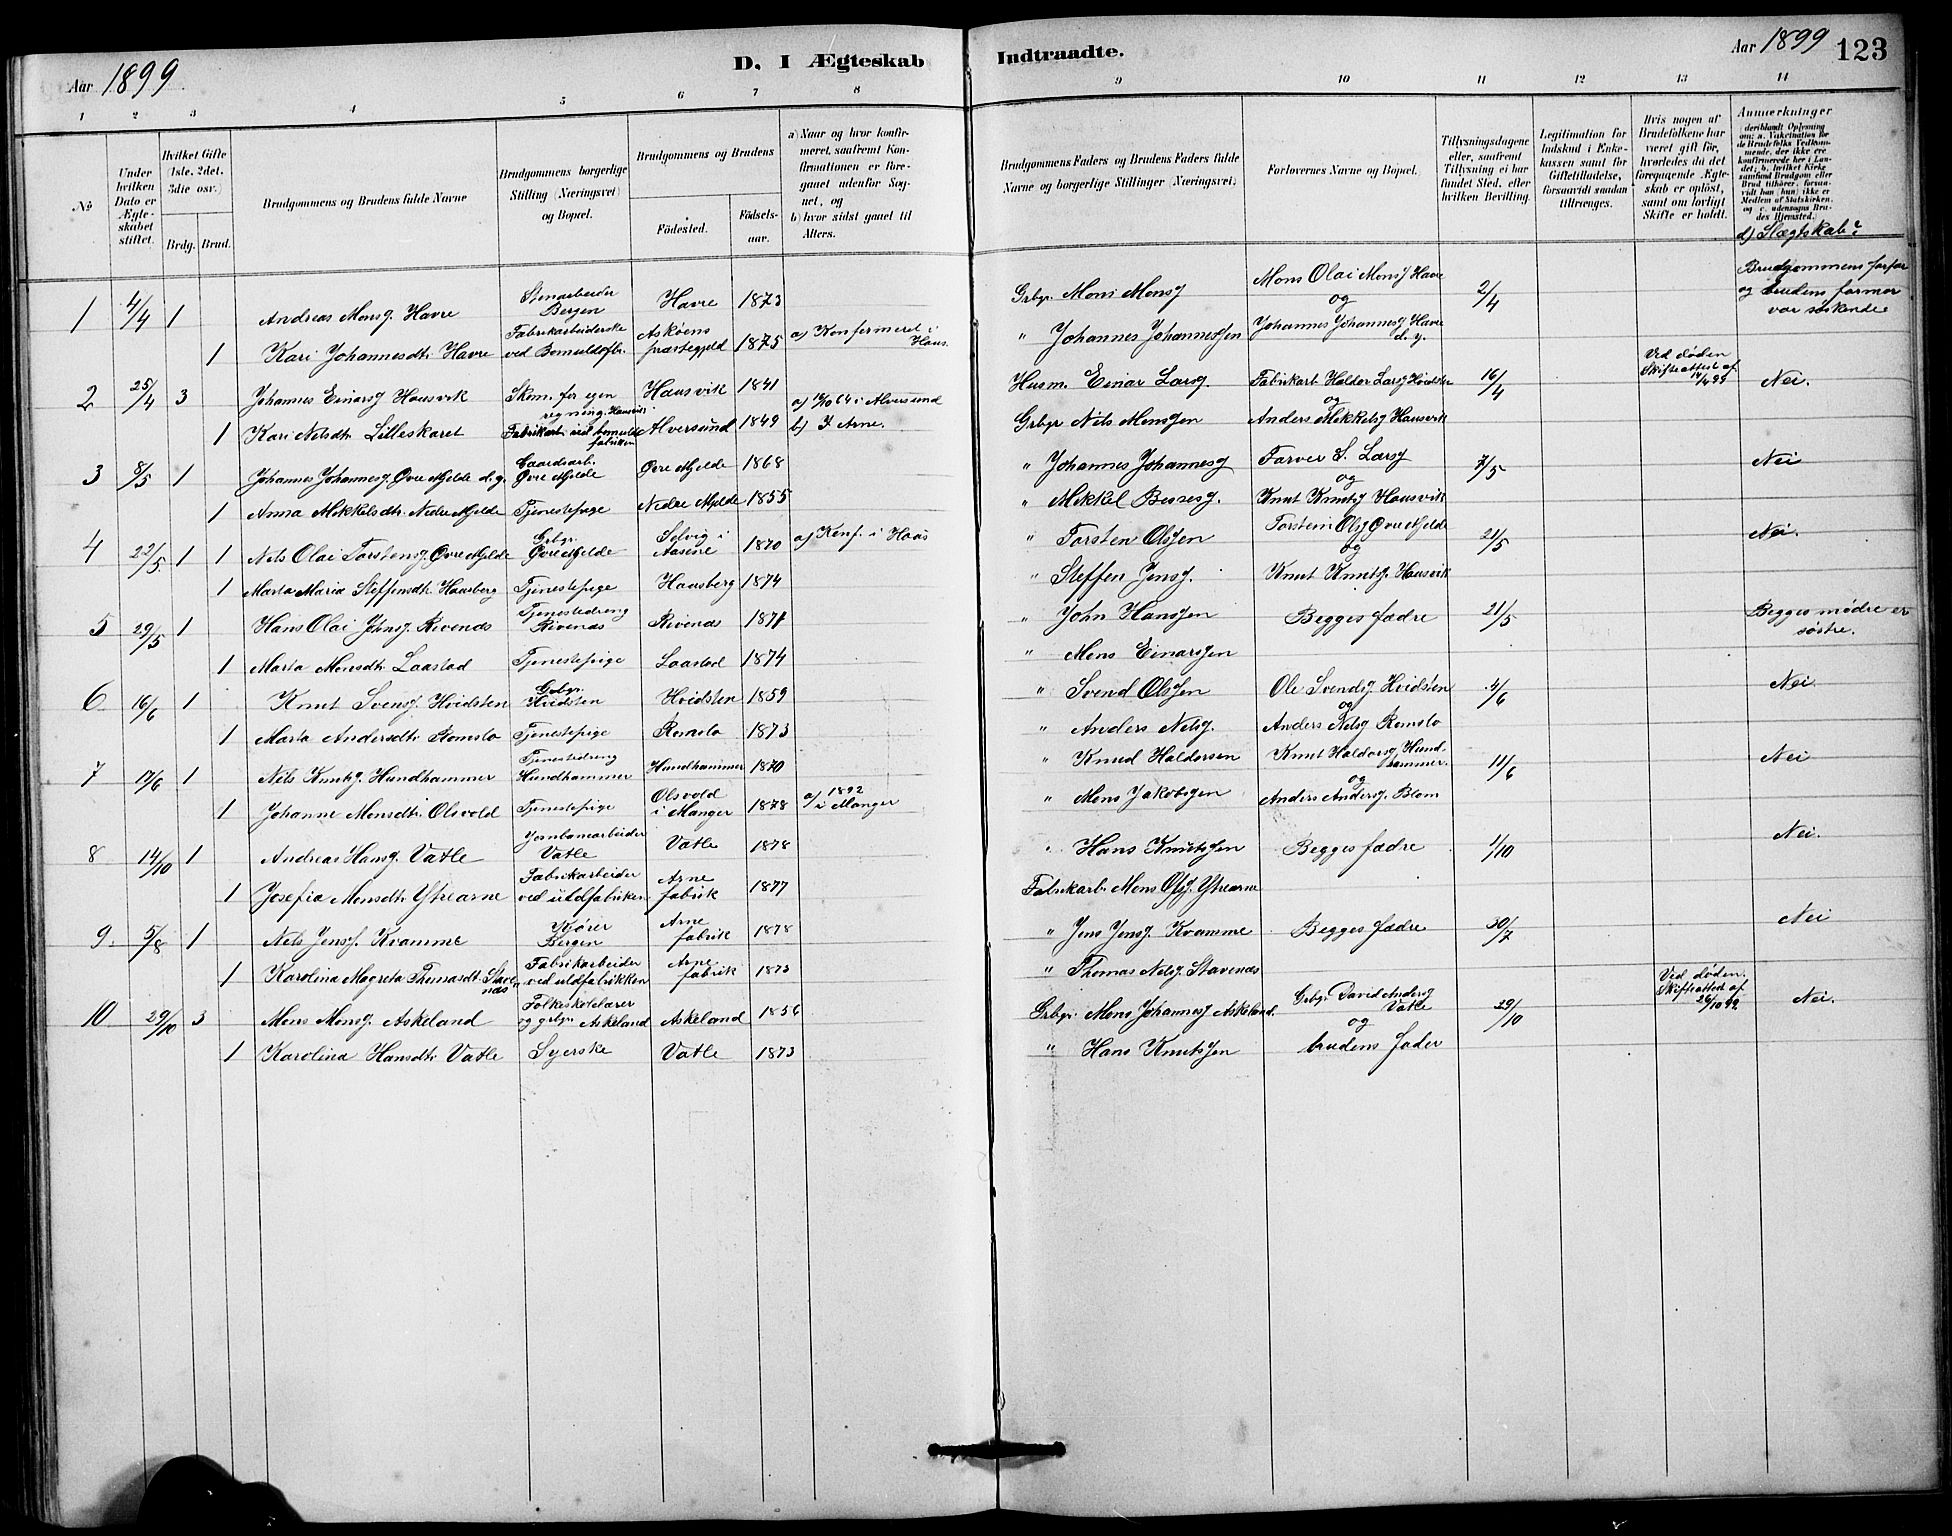 Aar 1899
D. I Ægteskab
Indtraadte.
Aar 1899
123
1 2 3 4 5 6 7 8
9 10 11 12 13 14
No
Under hvilken Dato er Ægteskabet stiftet.
Hvilket Gifte (1ste, 2det, 3die osv.)
Brdg. Brud.
Brudgommens og Brudens fulde Navne
Brudgommens borgerlige Stilling (Næringsvei) og Bopæl.
Brudgommens og Brudens
Fødested.
Fødselsaar.
a) Naar og hvor konfirmeret, saafremt Konfirmationen er foregaaet udenfor Sognet, og
b) hvor sidst gaaet til Alters.
Brudgommens Faders og Brudens Faders fulde Navne og borgerlige Stillinger (Næringsvei.)
Forlovernes Navne og Bopæl.
Tillysningsdagene eller, saafremt Tillysning ei har fundet Sted, efter hvilken Bevilling.
Legitimation for Indskud i Enkekassen samt for Giftetilladelse, forsaavidt saadan tiltrænges.
Hvis nogen af Brudefolkene har været gift før, hvorledes da det foregaaende Ægteskab er opløst, samt om lovligt Skifte er holdt.
Anmærkninger
deriblandt Oplysning om: a. Vakcination for de Brudefolks Vedkommende, der ikke ere konfirmerede her i Landet; b. hvilket Kirkesamfund Brudgom eller Brud tilhører, forsaavidt han (hun) ikke er Medlem af Statskirken, og c. udensogns Brudes Hjemsted.
d) Slægtskab?
1 4/4 1 Andreas Monsg. Havre Stenarbeider Bergen Havre 1873
Grbgr. Mons Monsg Mons Olai Monsg Havre og 2/4 Brudgommens farfar og brudens farmor var søskende
1 Kari Johannesdtr Havre Fabrikarbeiderske ved Bomuldsfbr. Askøens præstegjeld 1875 a) Konfirmeret i Haus.
" Johannes Johannessen Johannes Johannesg Havre d.y.
2 25/4 3 Johannes Einarsg Hausvik Skom. for egen regning. Hausvik Hausvik 1841
Husm. Einar Larsg. Fabrikarb Haldor Larsg Hvidsten og 16/4 Ved døden Skifteattest af 14/4 99 Nei.
1 Kari Nelsdtr Lilleskaret Fabrikarb. ved bomuldsfabriken Alversund 1849 a) 64 i Alversund b) I Arne.
Grbgr Nils Monssen Anders Mikkelsg Hausvik
3 8/5 1 Johannes Johannesg. Øvre Mjelde d.y. Øvre Mjelde Øvre Mjelde 1868
" Johannes Johannesg Farver S. Larsg og 7/5 Nei
1 Anna Mikkelsdtr. Nedre Mjelde Tjenestepige Nedre Mjelde 1855
" Mikkel Knut Knutsg Hausvik
4 22/5 1 1 Nils Olai Torsteng. Øvre Mjelde Grbgr. Øvre Mjelde i Aasene 1870 a) Konf. i Haus
" Torsten Olssen Torstein Olsg Øvre Mjelde og 21/5 Nei.
1 Marta Maria Steffensdtr. Hausberg Tjenestepige Hausberg 1874
" Steffen Jensg. Knut Knutsg. Hausvik
5 29/5 1 Hans Olai Johnsg. Rivenes Tjenestedreng Rivenes Rivenes 1871
" John Hanssen Begges fædre 21/5 Begges mødre er søstre.
1 Marta Monsdtr Laastad Tjenestepige Laastad 1874
" Mons Einarssen
6 16/6 1 Knut Svensg. Hvidsten Grbgr. Hvidsten Hvidsten 1859
" Svend Olssen Ole Svendsg Hvidsten og 4/6 Nei.
1 Marta Andersdtr Romslo Tjenestepige Romslo 1873
" Anders Nelsg. Anders Nelsg Romslo
7 17/6 1 Nils Knutsg. Hundhammer Tjenestedreng Hundhammer Hundhammer 1870
" Knud Haldorsen Knut Haldorsg Hundhammer. og 11/6 Nei
1 Johanne Monsdtr. Olsvold Tjenestepige Olsvold i Manger 1878 a) 1892 i Manger
" Mons Jakobsen Anders Andersg. Blom
8 14/10 1 Andreas Hansg. Vatle Jernbanearbeider Vatle Vatle 1878
" Hans Knutssen Begges fædre 1/10 Nei.
1 Josefia Monsdtr Ytrearne Fabrikarbeider ved uldfabriken Arne fabrik 1877
Fabrikarb. Mons Olsg. Ytrearne
9. 5/8 1 Nels Jensg. Kvamme Kjører Bergen Arne fabrik 1878
" Jens Jensg. Kvamme Begges fædre 30/7 Nei
1 Karolina Magreta Thomasdtr. Stavenæs Fabrikarbeider ved uldfabrikken Arne fabrik 1873
" Thomas Nelsg. Stavenæs
10 29/10 3 Mons Monsg. Askeland Folkeskolelærer og grbgr. Askeland Askeland 1856
Grbgr. Mons Johannesg Askeland. Grbgr. David Andersg Vatle og 29/10 Ved døden. Skifteattest af 26/10 99 Nei.
1 Karolina Hansdtr Vatle Syerske Vatle 1873
" Hans Knutssen brudens fader